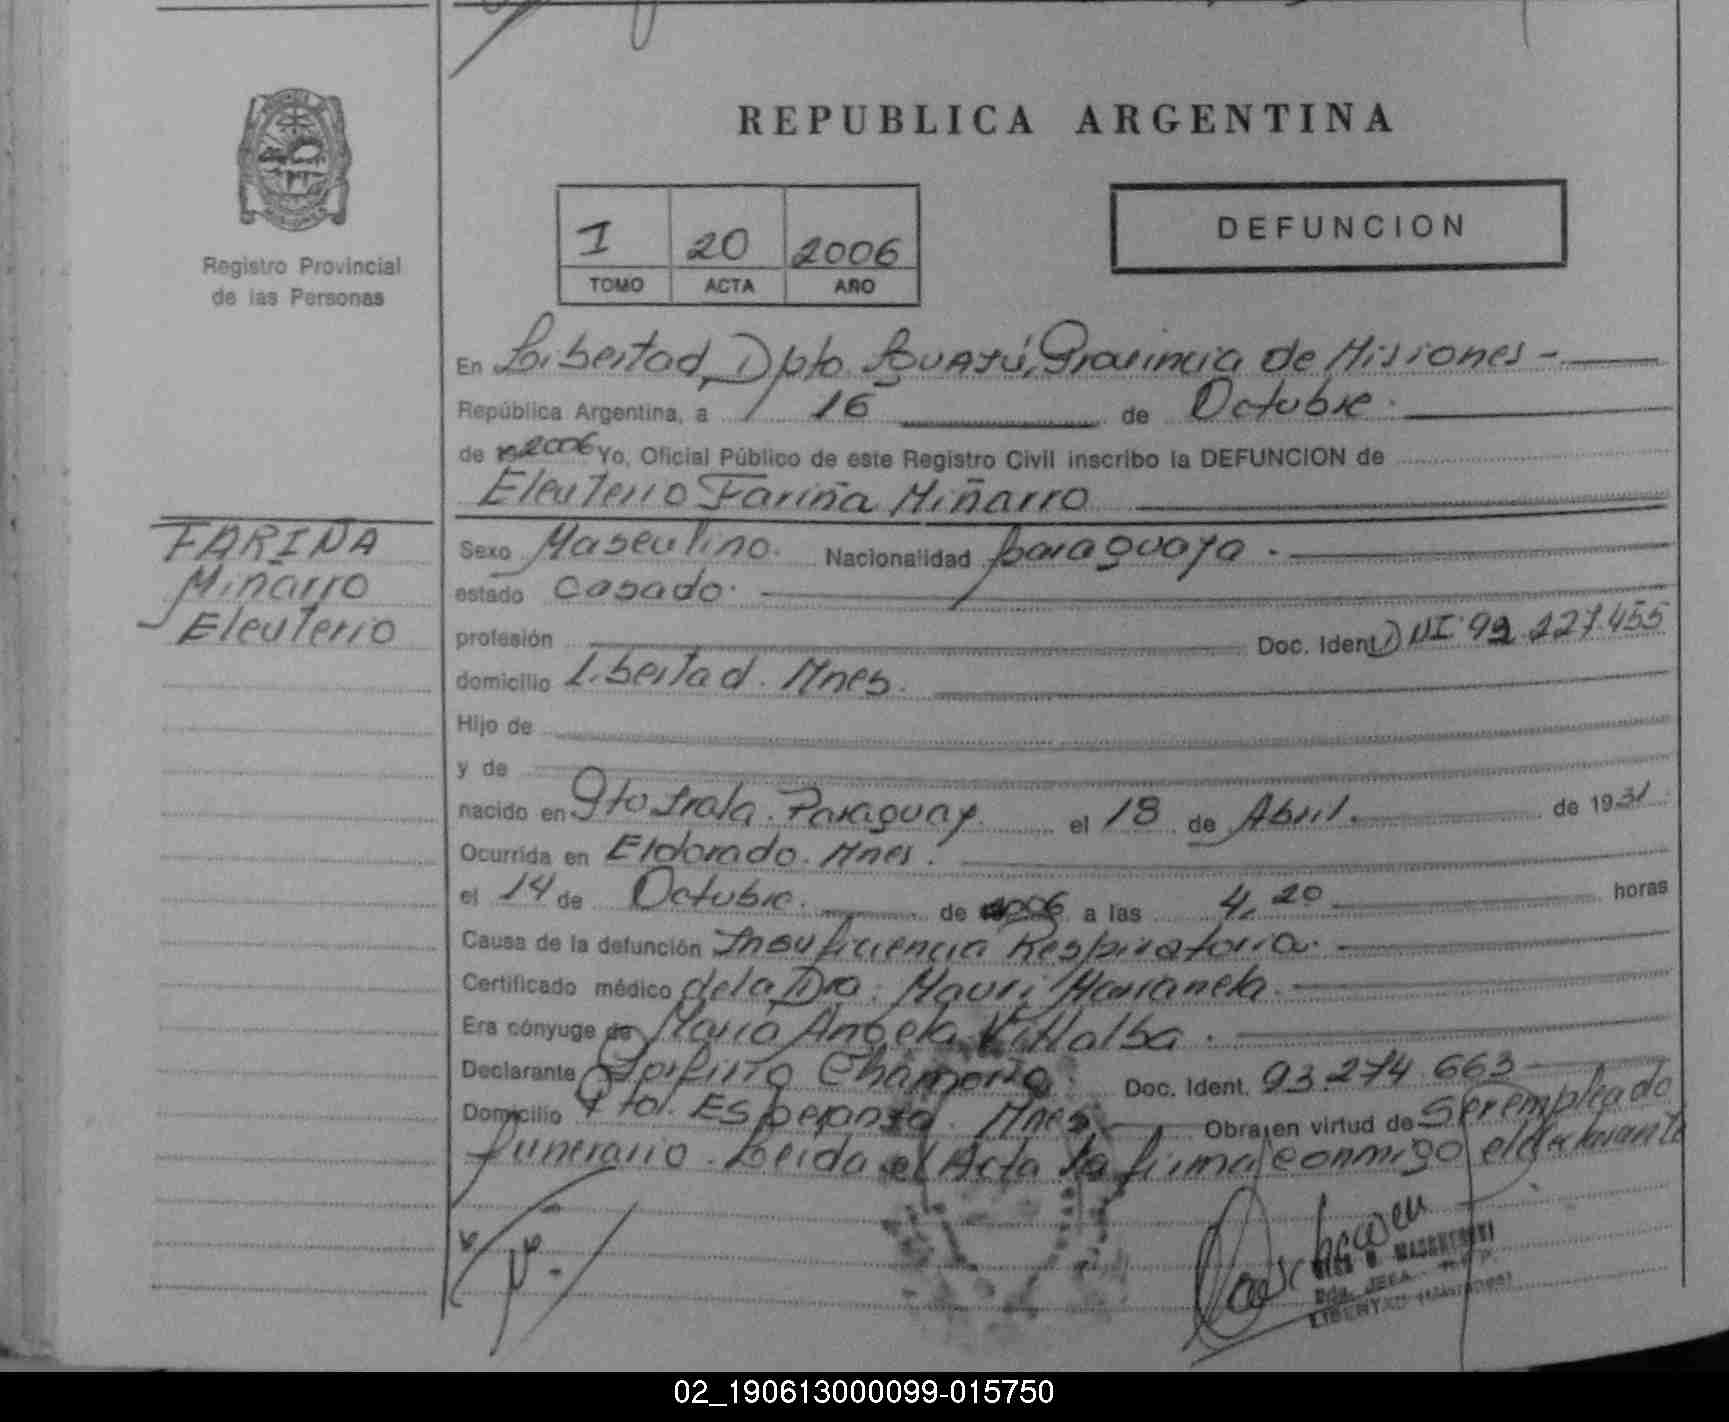 REPUBLICA ARGENTINA
Registro Provincial
de las Personas
I 20 2006
TOMO ACTA AÑO
DEFUNCION
En Libertad, Dpto Iguazú, Provincia de Misiones -
República Argentina, a 16 de Octubre.
de 2006 Yo, Oficial Público de este Registro Civil inscribo la DEFUNCION de
Eleuterio Fariña Miñarro
FARIÑA
Miñarro
Eleuterio
Sexo Masculino. Nacionalidad paraguaya.
estado casado.
profesión Doc. Ident. DNI 92.227.455
domicilio Libertad. Mnes.
Hijo de
y de
nacido en Pto Irala. Paraguay. el 18 de Abril. de 1931
Ocurrida en Eldorado. Mnes.
el 14 de Octubre. de 2006 a las 4,20 horas
Causa de la defunción Insuficiencia Respiratoria.
Certificado médico de la Dra. Mauri Marianela.
Era cónyuge de Maria Angela Villalba.
Declarante Porfirio Chamorro. Doc. Ident. 93.274.663
Domicilio Pto. Esperanza. Mnes Obra en virtud de Ser empleado
funerario. Leida el Acta la firma conmigo el declarante
LIBERTAD (MISIONES)
02_190613000099-015750